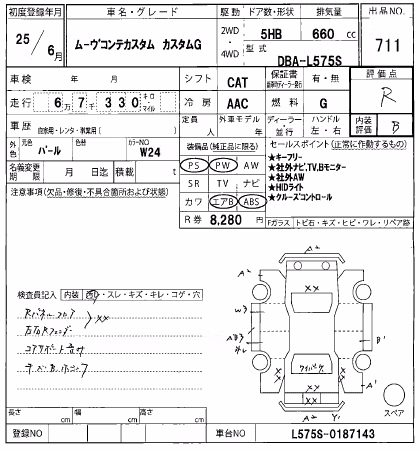 初度登録年月 車名・グレード 駆動 ドア数・形状 排気量 出品NO.
25/6月 ムーヴコンテカスタム カスタムG 2WD・4WD 5HB 660 cc 711
型式 DBA-L575S
車検 年 月 シフト CAT 保証書 有・無 評価点 R
走行 6万7千330 キロ・マイル 冷房 AAC 燃料 G
車歴 自家用・レンタ・事業用[ ] 定員 人 外車モデル 年 ディーラー 並行 ハンドル 左・右 内装評価 B
外色 元色 パール 色替 カラーNO W24
装備品(純正品に限る) セールスポイント(正常に作動するもの)
名義変更期限 月 日迄 積載 t
PS PW AW
SR TV ナビ
カワ エアB ABS
R券 8,280 円
★キーフリー
★社外ナビ,TV,Bモニター
★社外AW
★HIDライト
★クルーズコントロール
注意事項(欠品・修復・不具合箇所および状態)
Fガラス トビ石・キズ・ヒビ・ワレ・リペア跡
検査員記入 内装 ・スレ・キズ・キレ・コゲ・穴
XX
A2
A2
A1
W3
XX
B1
XX
XX XX
A2
Y1
スペア
長さ cm 幅 cm 高さ cm
登録NO 車台NO L575S-0187143